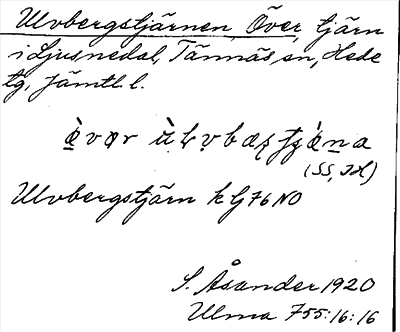 Ulvbergstjärnen, Över, tjärn
i Ljusnedal, Tännäs sn, Hede
tg, Jämtl. l.
(SS, JH)
Ulvbergstjärn k Lj 76 NO
S. Åsander 1920
Ulma 755:16:16